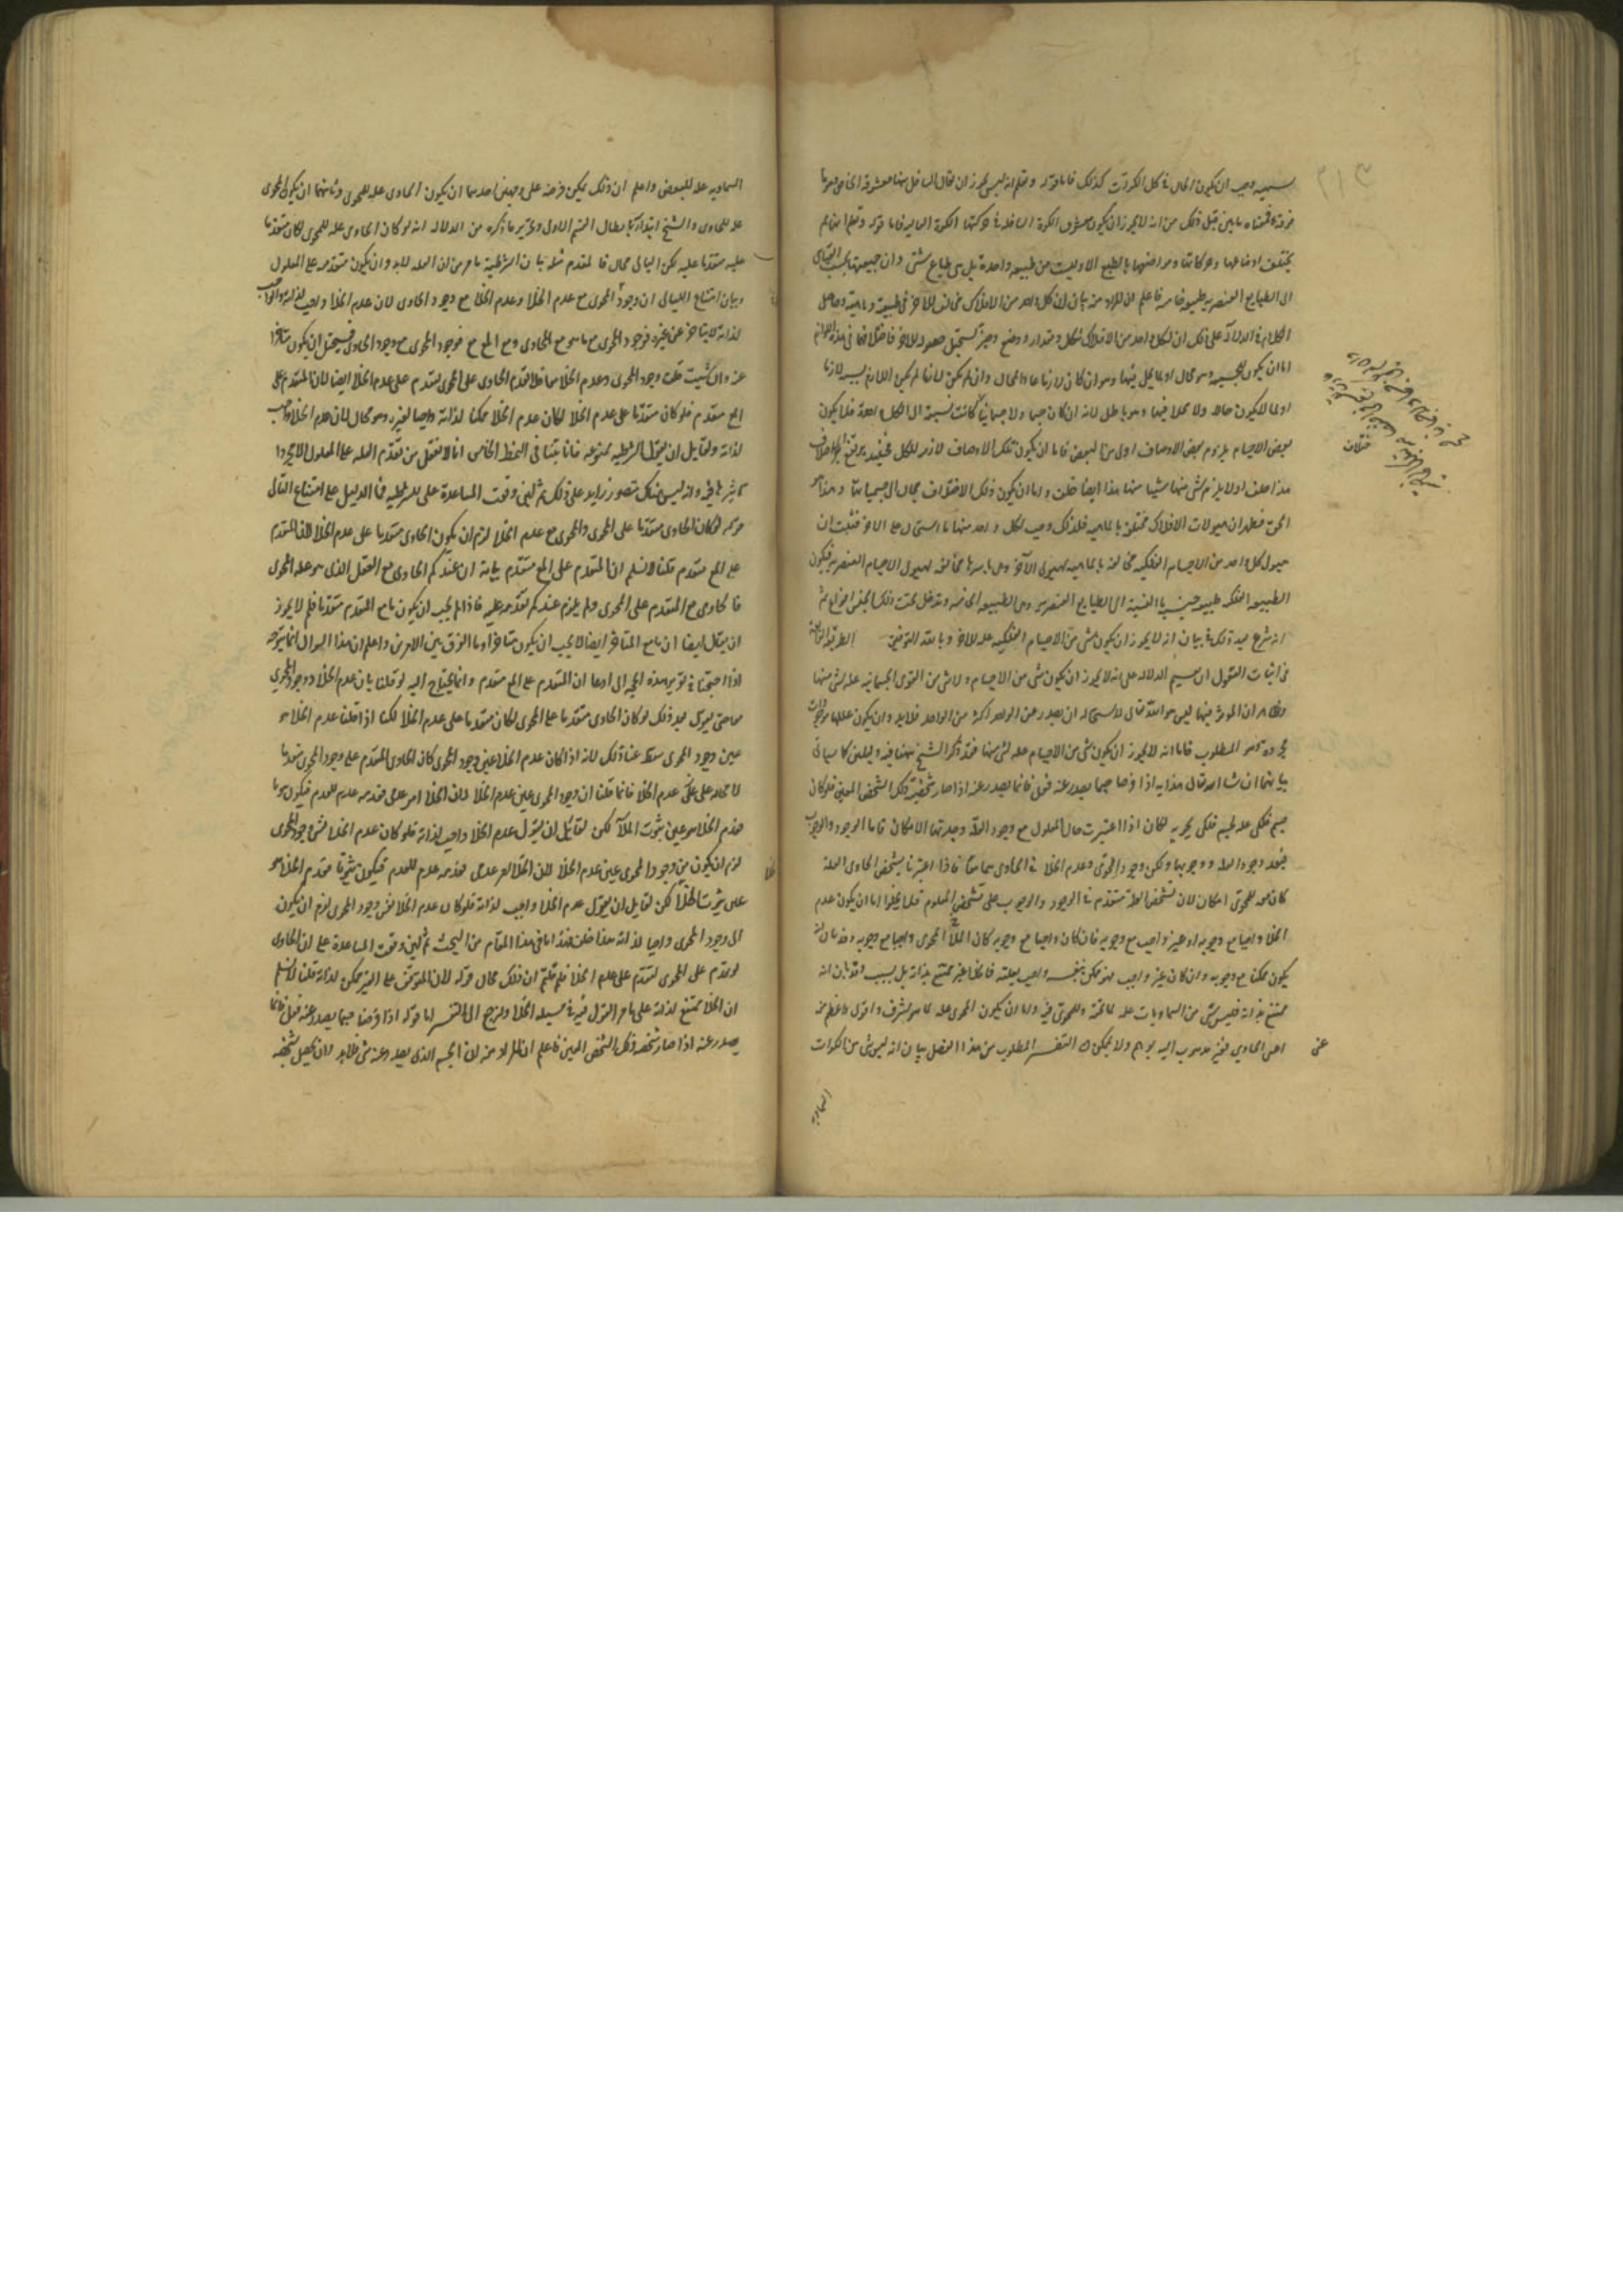 وجب ان يكون الحال فى كل الكرات كذلك فاما قوله
فرقه فمعناه ما بين قبل ذلك من انه لا يجوز ان يكون معشوق الكرة السافلة فى حركتها الكرة العالية فاما قوله وتعلم انها
يختلف اوضاعها وحركاتها ومواضعها بالطبع لا وليست من طبيعه واحدة بل هى طبايع شتى وان جمعها بحسب القياس
الى الطبايع العنصريه طبيعة خامسه فاعلم ان المراد منه بيان ان كل واحد من الافلاك مخالف للاخر فى طبيعته وماهيته وحاصل
الكلام فى الدلالة على ذلك ان لكل واحد من الافلاك شكل ومقدار ووضع وحيز يستحيل حصوله للاخر فاختلافها فى هذه اللوازم
اما ان يكون للجسميه وهو محال او لما يحل فيها وهو ان كان لازما عاد المحال وان لم يكن لازما لم يكن اللازم بسببه لازما
او لما لا يكون حالا ولا محلا فيها وهو باطل لانه ان كان جسما او جسمانيا كانت نسبته الى الكل واحدة فلا يكون
بعض الاجسام بلزوم بعض الاوصاف اولى من البعض فاما ان يكون تلك الاوصاف لازمه للكل فحينئذ يرتفع الاختلاف
هذا خلف او لا يلزم شى منها شيئا منها هذا ايضا خلف واما ان يكون ذلك الاختلاف بحال الجسميات وهذا هو
الحق فظهر ان هيولات الافلاك مختلفة بالماهيه فلذلك وجب لكل واحد منها ما استحال على الاخر فثبت ان
هيولى كل واحد من الاجسام الفلكيه مخالفة بالماهيه لهيولى الاخر وهى باسرها مخالفة لهيولى الاجسام العنصريه فيكون
الطبيعه الفلكيه طبيعه جنسيه بالنسبة الى الطبايع العنصريه وهى الطبيعه الخامسة وتدخل تحت ذلك الجنس انواع ثم
انه شرع بعد ذلك فى بيان انه لا يجوز ان يكون شى من الاجسام الفلكيه عله للاخر وبالله التوفيق الطريقة الثانية
فى اثبات العقول ان نقيم الدلاله على انه لا يجوز ان يكون شى من الاجسام ولا شى من القوى الجسمانيه عله لشى منها
وظاهر ان الموثر فيها ليس هو الله تعالى لاستحاله ان يصدر عن الواحد اكثر من الواحد فلابد وان يكون عللها موجودات
مجرده وهو المطلوب فاما انه لا يجوز ان يكون شى من الاجسام عله لشى منها فقد ذكر الشيخ ههنا فيه دليلين كما سياتى
بيانهما ان شا الله تعالى هداية اذا فرضنا جسما يصدر عنه فعل فانما يصدر عنه اذا صار شخصه ذلك الشخص المعين فلو كان
جسم فلكى عله لجسم فلكى يحويه لكان اذا اعتبرت حال المعلول مع وجود العلة وجدتها الامكان فاما الوجود والوجوب
فبعد وجود العله ووجوبها ولكن وجود المحوى وعدم الخلا فى الحاوى هما معا فاذا اعتبرنا تشخص الحاوى العله
كان معه للمحوى امكان لان تشخص العلة متقدم فى الوجود والوجوب على تشخص المعلول فلا يخلوا اما ان يكون عدم
الخلا واجبا مع وجوبه او غير واجب مع وجوبه فان كان واجبا مع وجوبه كان الملا المحوى واجبا مع وجوبه وقد بان انه
يكون ممكنا مع وجوبه وان كان غير واجب فهو ممكن بنفسه واجب بعلته فالخلا غير ممتنع بذاته بل بسبب وقد بان انه
ممتنع بذاته فليس شى من السماويات عله لما تحته وللمحوى فيه واما ان يكون المحوى عله لما هو اشرف واقوى واعظم منه
اعنى الحاوى فغير مذهوب اليه بوهم ولا بممكن التفسير المطلوب من هذا الفصل بيان انه ليس شى من الكرات
السماويه
السماويه عله للبعض واعلم ان ذلك يمكن فرضه على وجهين احدهما ان يكون الحاوى عله للمحوى وثانيهما ان يكون المحوى
عله للحاوى والشيخ ابتدا بابطال القسم الاول وتحرير ما ذكره من الدلاله انه لو كان الحاوى عله للمحوى لكان متقدما
عليه متقدما عليه لكن التالى محال فالمقدم مثله بيان الشرطية ما مر من ان العله لابد وان يكون متقدمه على المعلول
وبيان امتناع التالى ان وجود المحوى مع عدم الخلا وعدم الخلا مع وجود الحاوى لان عدم الخلا واجب لذاته والواجب
لذاته لا يتاخر عن غيره فوجود المحوى مع ما هو مع الحاوى ومع المع مع فوجود المحوى مع وجود الحاوى فيستحيل ان يكون متاخرا
عنه وان شيت قلت وجود المحوى وعدم الخلا معا فلو تقدم الحاوى على المحوى لتقدم على عدم الخلا ايضا لان المتقدم على
المع متقدم فلو كان متقدما على عدم الخلا لكان عدم الخلا ممكنا لذاته واجبا لغيره وهو محال لان عدم الخلا واجب
لذاته ولقايل ان يقول الشرطيه ممنوعه فانا بينا فى النمط الخامس انا لا نعقل من تقدم العله على المعلول الا مجرد
تاثيرها فيه وانه ليس هناك تصور زايد على ذلك ثم لين وقعت المساعدة على الشرطيه فما الدليل على امتناع التالى
قوله لو كان الحاوى متقدما على المحوى والمحوى مع عدم الخلا لزم ان يكون الحاوى متقدما على عدم الخلا لان المتقدم
على المع متقدم قلنا لا نسلم ان المتقدم على المع متقدم بيانه ان عندكم الحاوى مع العقل الذى هو عله المحوى
فالحاوى مع المتقدم على المحوى ولم يلزم عندكم تقدمه عليه فاذا لم يجب ان يكون ما مع المتقدم متقدما فلم لا يجوز
ان يقال ايضا ان ما مع المتاخر ايضا لا يجب ان يكون متاخرا وما الفرق بين الامرين واعلم ان هذا السوال انما يتوجه
اذا احتجنا فى تقرير هذه الحجه الى ادعا ان المتقدم على المع متقدم وانما يحتاج اليه لو قلنا بان عدم الخلا ووجود المحوى
معا حتى يقول بعد ذلك لو كان الحاوى متقدما على المحوى لكان متقدما على عدم الخلا لكنا اذا قلنا عدم الخلا هو
عين وجود المحوى سقط عنا ذلك لانه اذا كان عدم الخلا عين وجود المحوى كان الحاوى المتقدم على وجود المحوى متقدما
لا محاله على عدم الخلا فانما قلنا ان وجود المحوى عين عدم الخلا لان الخلا امر عدمى فعدمه عدم للعدم فيكون ثبوتا
فعدم الخلا هو عين ثبوت الملا لكن لقايل ان يقول عدم الخلا واجب لذاته فلو كان عدم الخلا نفس وجود المحوى
لزم ان يكون عين وجود المحوى عين عدم الخلا لان الخلا امر عدمى فعدمه عدم للعدم فيكون ثبوتا فعدم الخلا هو
عين ثبوت الملا لكن لقايل ان يقول عدم الخلا واجب لذاته فلو كان عدم الخلا نفس وجود المحوى لزم ان يكون
وجود المحوى واجبا لذاته هذا خلف فهذا ما فى هذا المقام من البحث ثم لين وقعت المساعدة على ان الحاوى
لو تقدم على المحوى لتقدم على عدم الخلا فلم قلتم ان ذلك محال قوله لان المتوقف على الغير ممكن لذاته قلنا لا نسلم
ان الخلا ممتنع لذاته على ما مر القول فيه فى مسيله الخلا ولنرجع الى التفسير اما قوله اذا فرضنا جسما يصدر عنه فعل فانما
يصدر عنه اذا صار شخصه ذلك الشخص المعين فاعلم ان المراد منه ان الجسم الذى يصدر عنه شى فلابد وان يحصل تشخصه